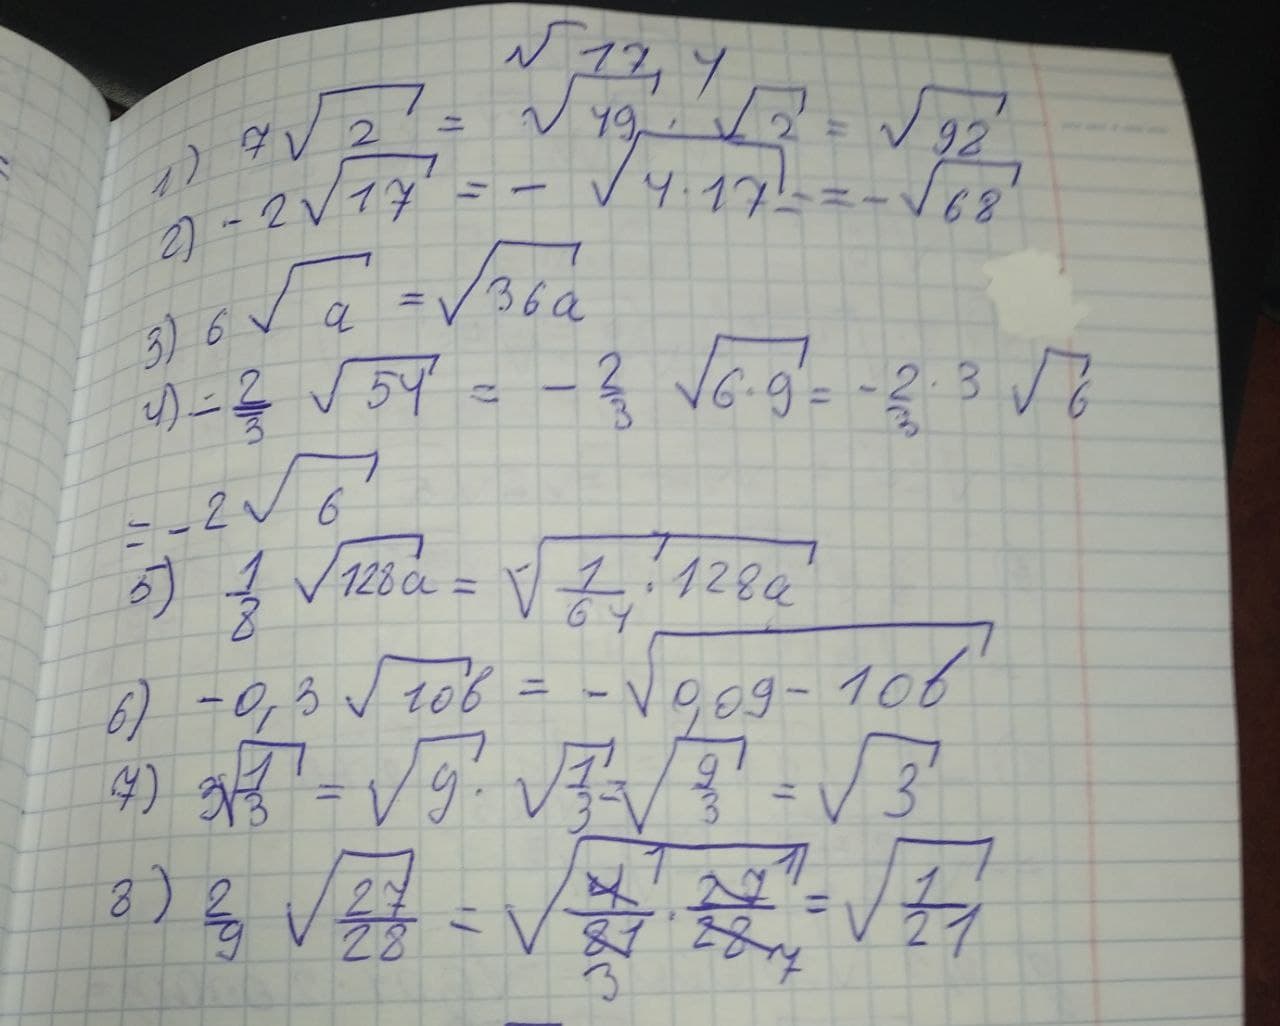 √17, 4
1) 7√2 = √49 · √2 = √92
2) -2√17 = - √4·17 = = -√68
3) 6√a = √36a
4) - 2/3 √54 = - 2/3 √6·9 = - 2/3 · 3 √6
= -2√6
5) 1/8 √128a = √1/64 · 128a
6) -0,3 √10b = -√0,09 - 10b
7) 3√1/3 = √9 · √1/3 = √9/3 = √3
8) 2/9 √27/28 = √4/81 1 3 · 27/28 1 7 = √1/21